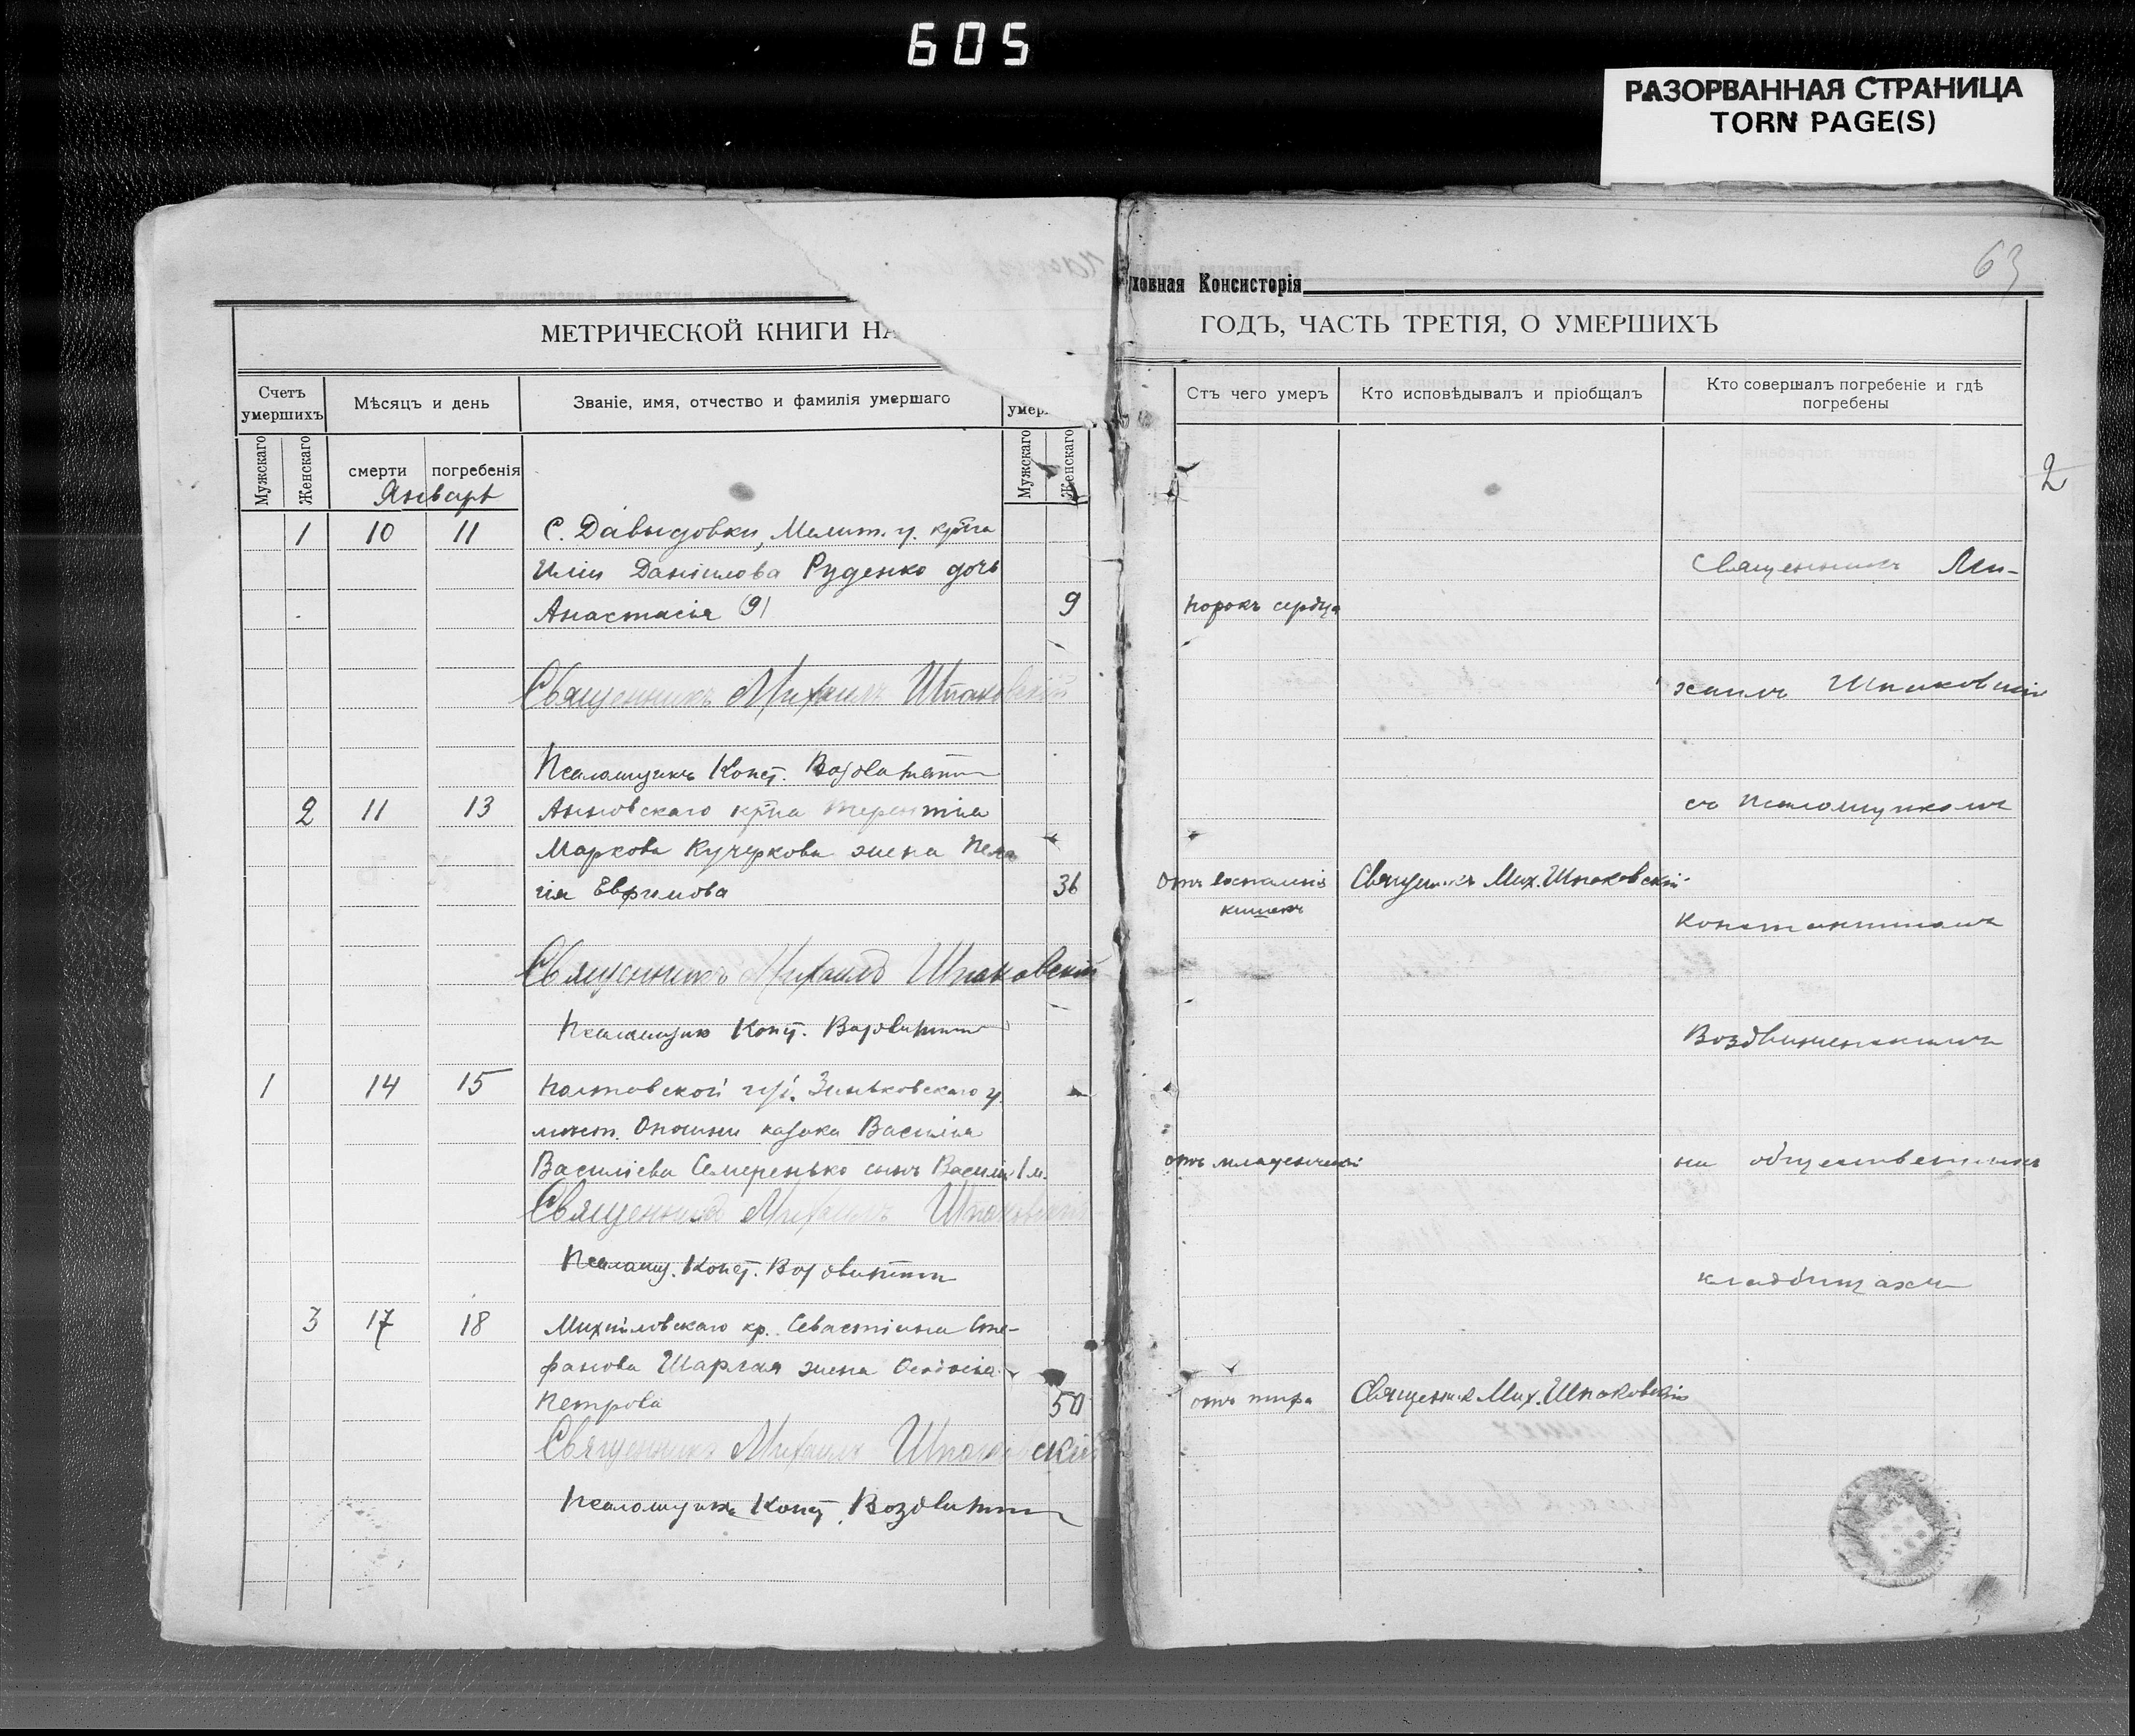 605
РАЗОРВАННАЯ СТРАНИЦА
TORN PAGE(S)
63
ховная Консисторія
МЕТРИЧЕСКОЙ КНИГИ НА
ГОДЪ, ЧАСТЬ ТРЕТІЯ, О УМЕРШИХЪ
Счетъ умершихъ
Мѣсяцъ и день
Званіе, имя, отчество и фамилія умершаго
умер
Стъ чего умеръ
Кто исповѣдывалъ и пріобщалъ
Кто совершалъ погребеніе и гдѣ погребены
Мужскаго
Женскаго
смерти
погребенія
Мужскаго
Женскаго
Январь
2
1 10 11 С. Давыдовки, Мелит. у. кр҃на
Иліи Даніилова Руденко дочь
Священникъ Ми-
Анастасія (9) 9 порокъ сердца
Священникъ Михаилъ Шпаковскій
хаилъ Шпаковскій
Псаломщикъ Конст.
2 11 13 Анновскаго кр҃на Терентія
съ псаломщикомъ
Маркова Кучеркова жена Пела
гія Евфимова 36 отъ воспаленія кишекъ Священникъ Мих. Шпаковскій
Константиномъ
Священникъ Михаилъ Шпаковскій
Псаломщикъ Конст.
Воздвиженскимъ
1 14 15 Полтовской губ. Зиньковскаго у.
мѣст. Опошни казака Василія
Василіева Семеренько сынъ Василій 1 м. отъ младенческой
на общественномъ
Священникъ Михаилъ Шпаковскій
Псаломщ. Конст.
кладбищахъ
3 17 18 Михайловскаго кр. Севастіана Сте-
фанова Шарлая жена Феодосія
Петрова 50 отъ тифа Священникъ Мих. Шпаковскій
Священникъ Михаилъ Шпаковскій
Псаломщикъ Конст.